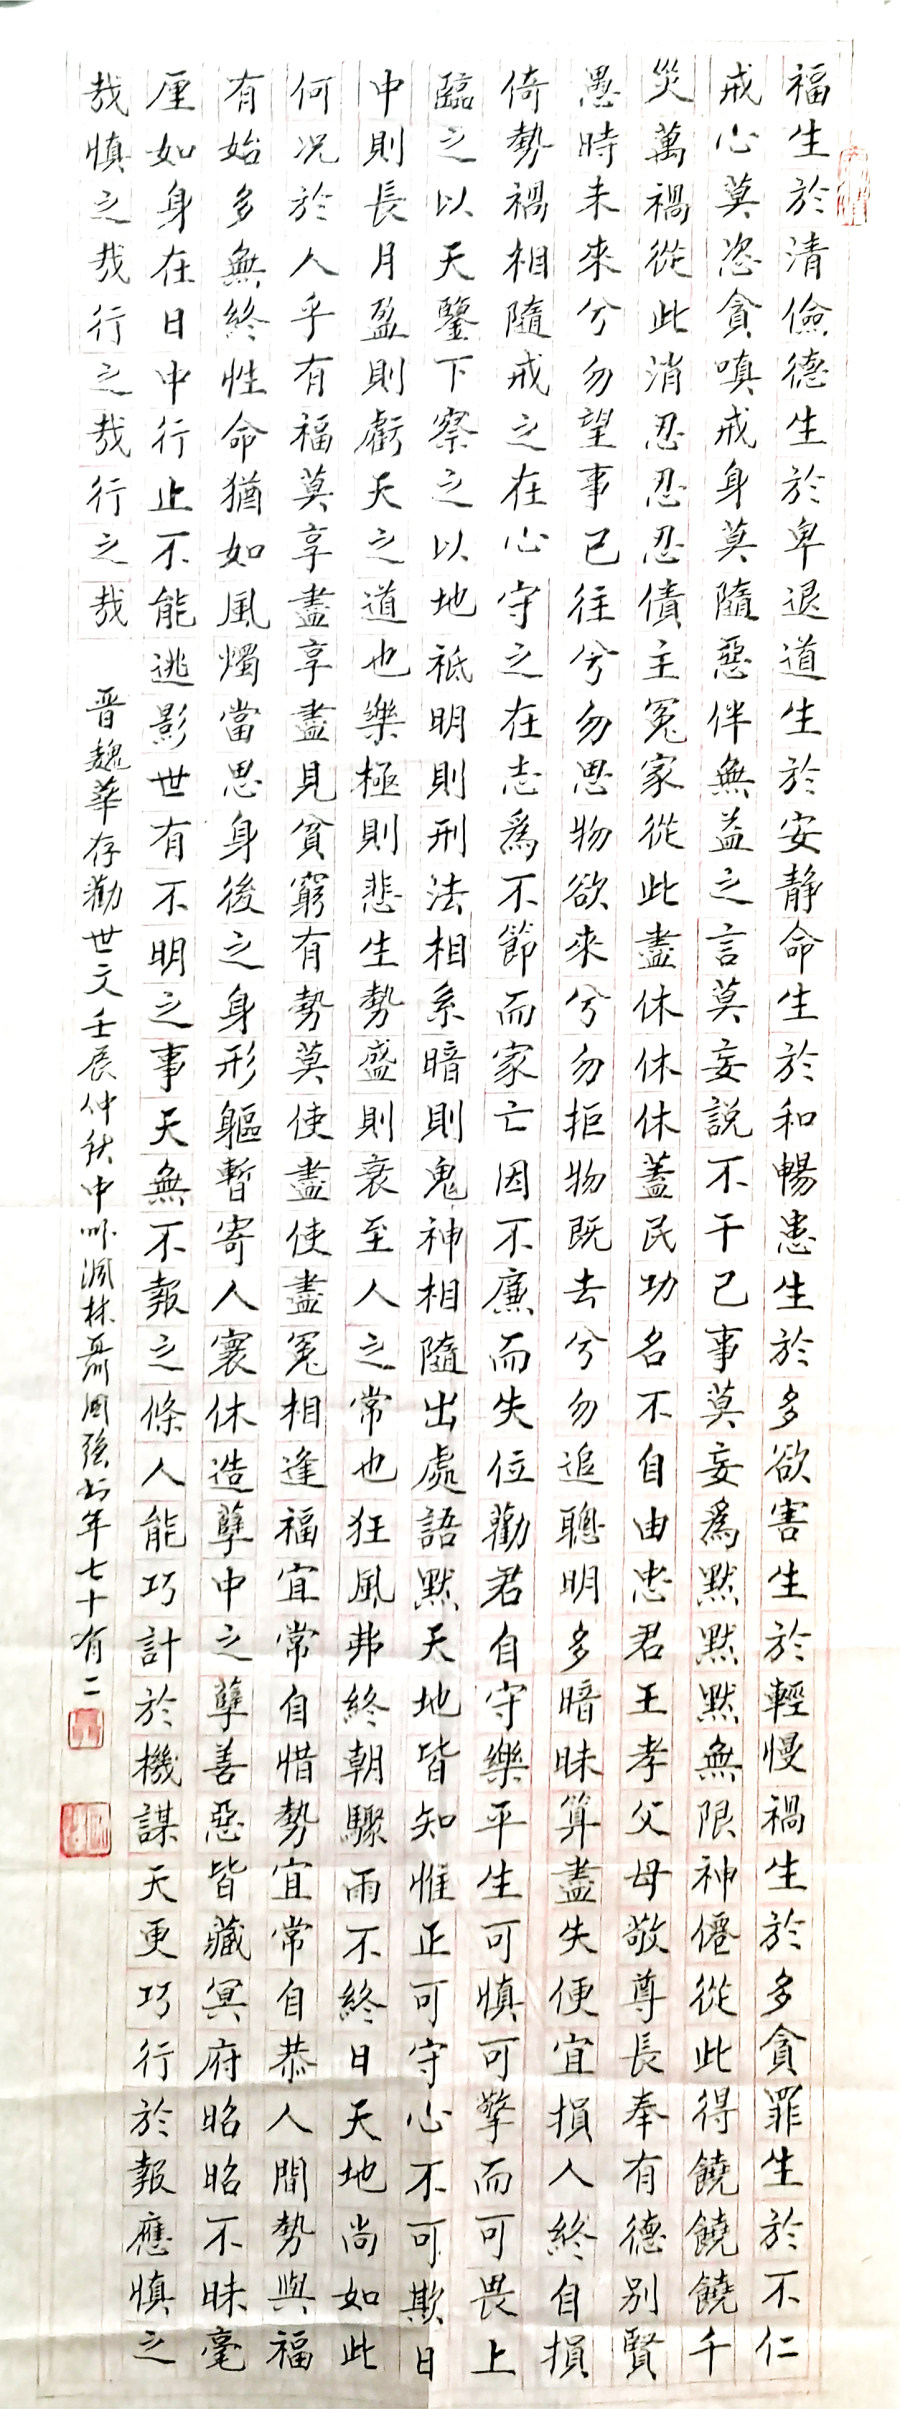 福生於清儉德生於卑退道生於安静命生於和暢患生於多欲害生於輕慢禍生於多貪罪生於不仁
戒心莫恣貪嗔戒身莫隨惡伴無益之言莫妄説不干己事莫妄爲默默默無限神僊從此得饒饒饒千
災萬禍從此消忍忍忍債主冤家從此盡休休休蓋民功名不自由忠君王孝父母敬尊長奉有德别賢
愚時未來兮勿望事已往兮勿思物欲來兮勿拒物既去兮勿追聰明多暗昧算盡失便宜損人終自損
倚勢禍相隨戒之在心守之在志爲不節而家亡因不廉而失位勸君自守樂平生可慎可擎而可畏上
臨之以天鑒下察之以地祗明則刑法相系暗則鬼神相隨出處語默天地皆知惟正可守心不可欺日
中則長月盈則虧天之道也樂極則悲生勢盛則衰至人之常也狂風弗終朝驟雨不終日天地尚如此
何况於人乎有福莫享盡享盡見貧窮有勢莫使盡使盡冤相逢福宜常自惜勢宜常自恭人間勢與福
有始多無終性命猶如風燭當思身後之身形軀暫寄人寰休造孽中之孽善惡皆藏冥府昭昭不昧毫
厘如身在日中行止不能逃影世有不明之事天無不報之條人能巧計於機謀天更巧行於報應慎之
哉慎之哉行之哉行之哉
晋魏華存勸世文壬辰仲秋中 林聶國強書年七十有二